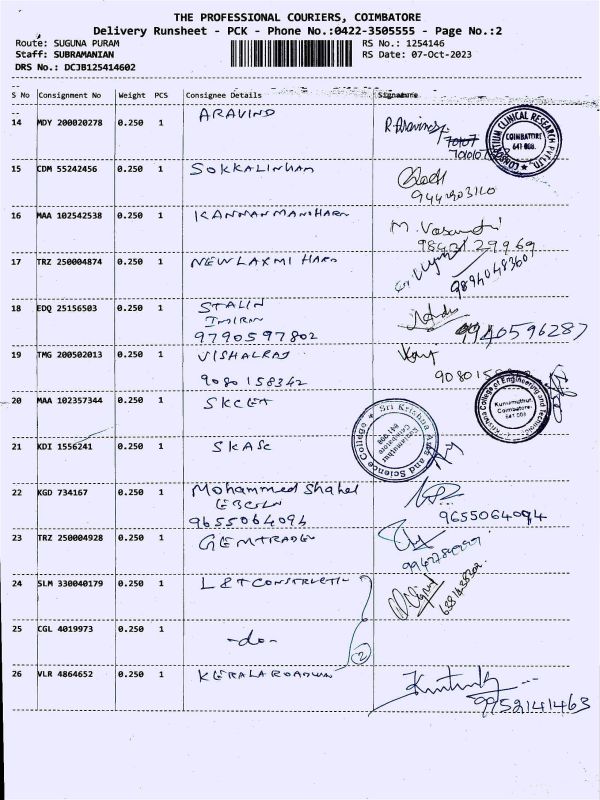 THE PROFESSIONAL COURIERS, COIMBATORE
Delivery Runsheet - PCK - Phone No.:0422-3505555 - Page No.:2
Route: SUGUNA PURAM RS No.: 1254146
Staff: SUBRAMANIAN RS Date: 07-Oct-2023
DRS No.: DCJB125414602
S No Consignment No Weight PCS Consignee Details Signature
14 MDY 200020278 0.250 1 ARAVIND R.Aravind
70107
COIMBATORE
641 008.
15 CDM 55242456 0.250 1 SOKKALINHAM
16 MAA 102542538 0.250 1 KANNAN MANOHARN M. Vasandri
17 TRZ 250004874 0.250 1 NEW LAXMI HARD
9894048360
18 EDQ 25156503 0.250 1 STALIN
9790597802 9940596287
19 TMG 200502013 0.250 1 VISHALRAJ
9080158342
20 MAA 102357344 0.250 1 SKCEA
Krishna College of Engineering and Technology
Kuniamuthur
Coimbatore-
641 008
21 KDI 1556241 0.250 1 SKASC
Sri Krishna Arts and Science College
Kuniamuthur
Coimbatore
641 008
22 KGD 734167 0.250 1 Mohammed Shahel
9655064094 9655064094
23 TRZ 250004928 0.250 1 GEMTRADEN
24 SLM 330040179 0.250 1 L&T CONSTRUCTI
25 CGL 4019973 0.250 1 -do-
2
26 VLR 4864652 0.250 1 KERALAROADWAY
9952141463